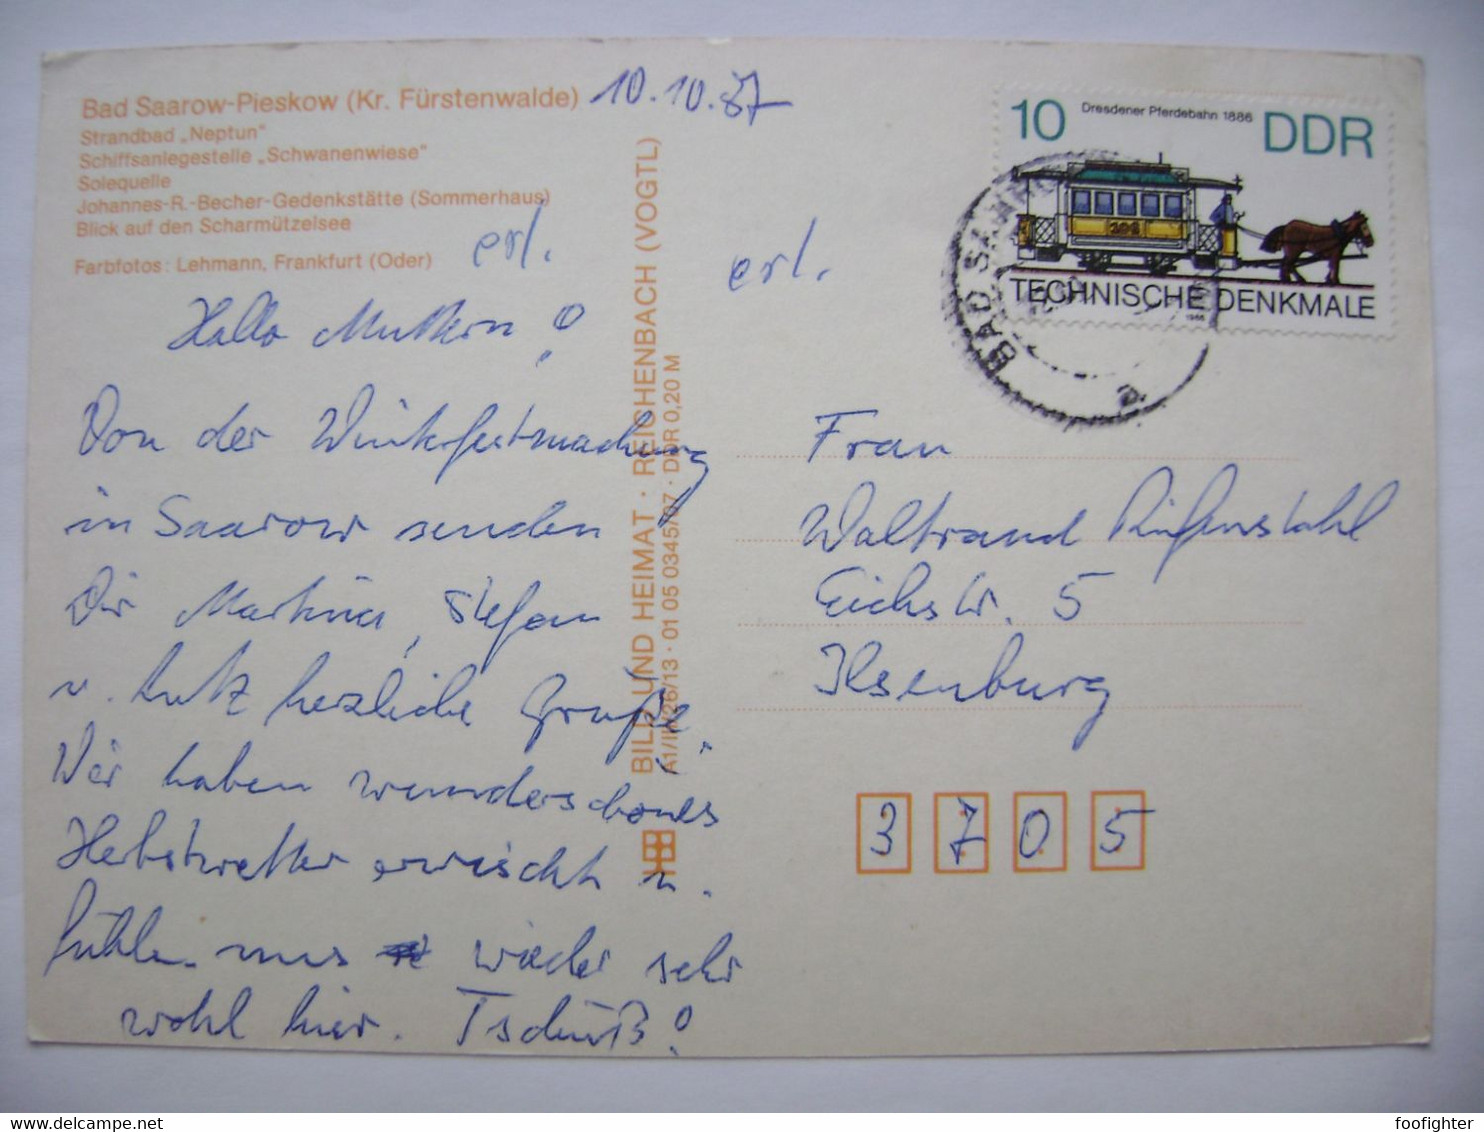 Bad Saarow-Pieskow (Kr. Fürstenwalde)
Strandbad „Neptun"
Schiffsanlegestelle „Schwanenwiese"
Solequelle
Johannes-R.-Becher-Gedenkstätte (Sommerhaus)
Blick auf den Scharmützelsee
Farbfotos: Lehmann, Frankfurt (Oder)
10.10.87
erl.
Hallo Muttern!
Von der Winterfestmachung
in Saarow senden
Dir Martina, Stefan
u. Lutz herzliche Grüße.
Wir haben wunderschönes
Herbstwetter erwischt u.
fühlen uns wieder sehr
wohl hier. Tschüß!
BILD UND HEIMAT · REICHENBACH (VOGTL)
A1/III/26/13 · 01 05 0345/07 · DDR 0,20 M
erl.
10 Dresdener Pferdebahn 1886 DDR
306
TECHNISCHE DENKMALE
1986
BAD SAAROW
Frau
Waltraud Riefenstahl
Eichstr. 5
Ilsenburg
3705
foofighter